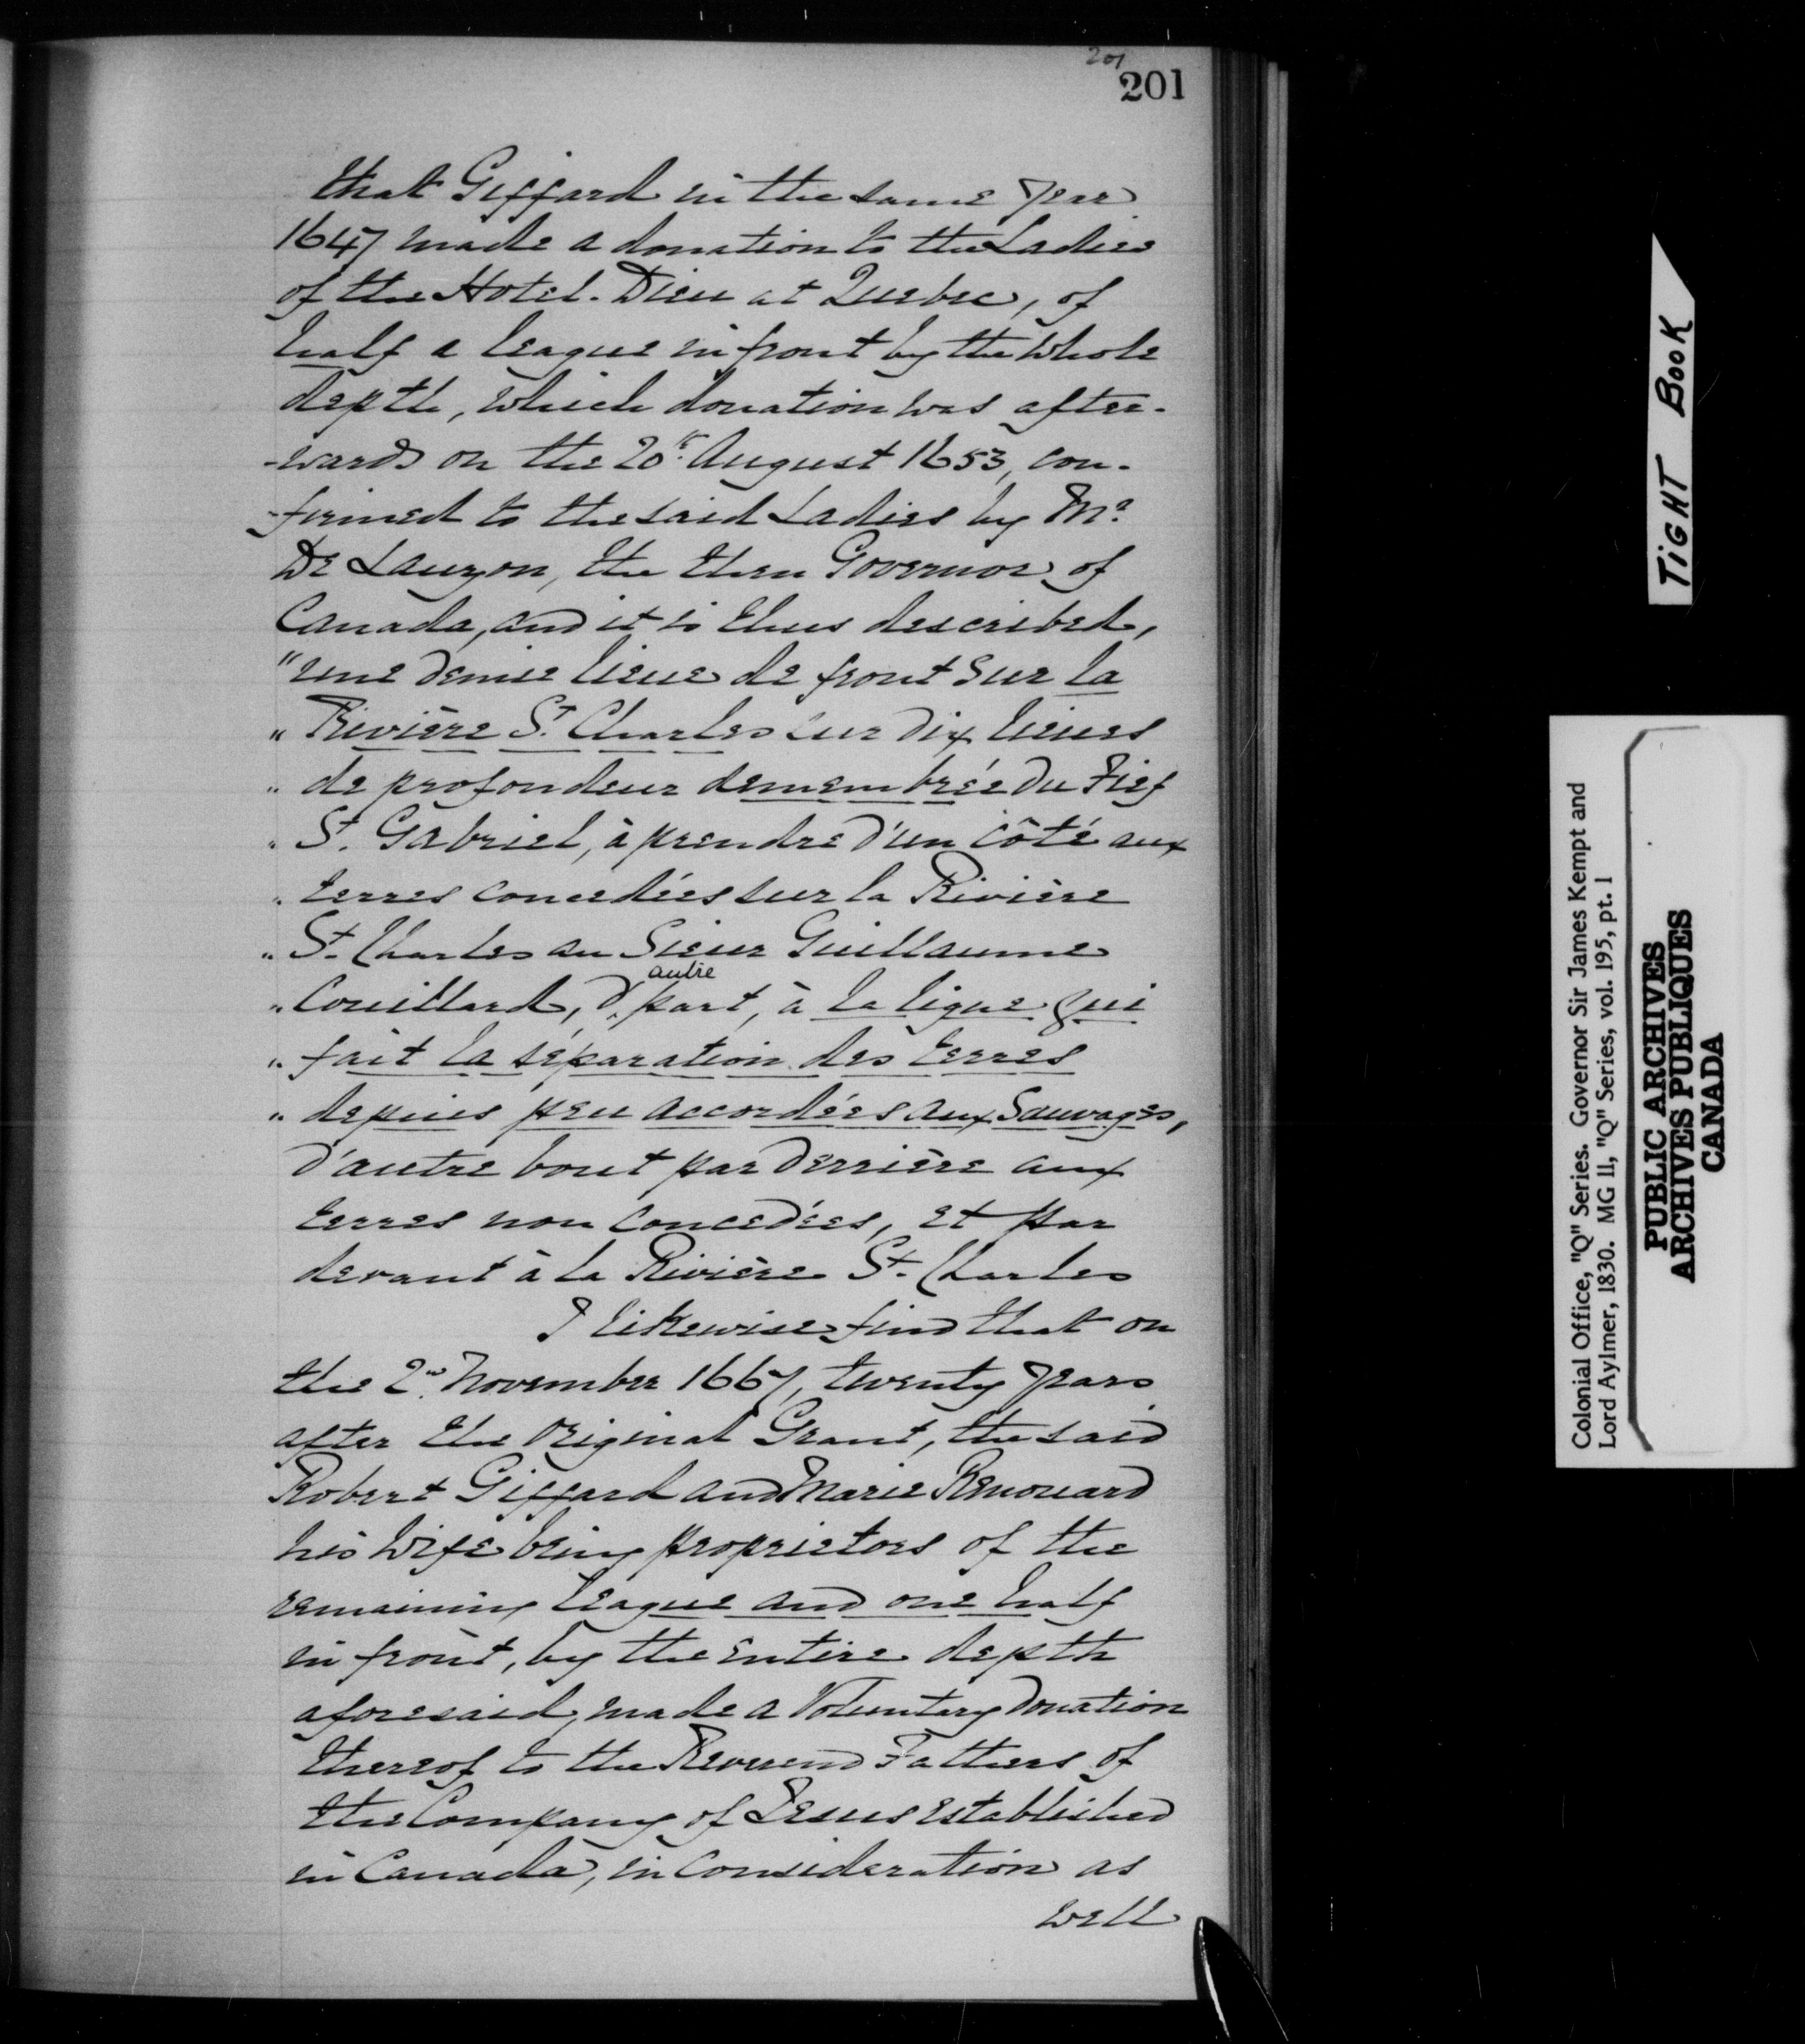 201
201
that Giffard in the same year
1647 made a donation to the Ladies
of the Hotel-Dieu at Quebec, of
half a league in front by the whole
depth, which donation was after-
-wards on the 20th August 1653, con-
-firmed to the said Ladies by Mr
De Lauzon, the then Governor of
Canada, and it is thus described,
"une demie lieue de front sur la
" Rivière St. Charles sur dix lieues
" de profondeur demembrée du Fief
" St. Gabriel, à prendre d'un côté aux
" terres concedées sur la Rivière
" St. Charles au Sieur Guillaume
" Couillard, d'autre part, à la ligne qui
" fait la séparation des terres
" depuis peu accordées aux Sauvages,
d'autre bout par derrière aux
terres non concedées, et par
devant à la Rivière St. Charles
I likewise find that on
the 2nd November 1667, twenty years
after the Original Grant, the said
Robert Giffard and Marie Renouard
his Wife being proprietors of the
remaining league and one half
in front, by the entire depth
aforesaid, made a Voluntary Donation
thereof to the Reverend Fathers of
the Company of Jesus established
in Canada, in consideration as
well
TiGHT BOOK
Colonial Office, "Q" Series. Governor Sir James Kempt and
Lord Aylmer, 1830. MG 11, "Q" Series, vol. 195, pt. 1
PUBLIC ARCHIVES
ARCHIVES PUBLIQUES
CANADA